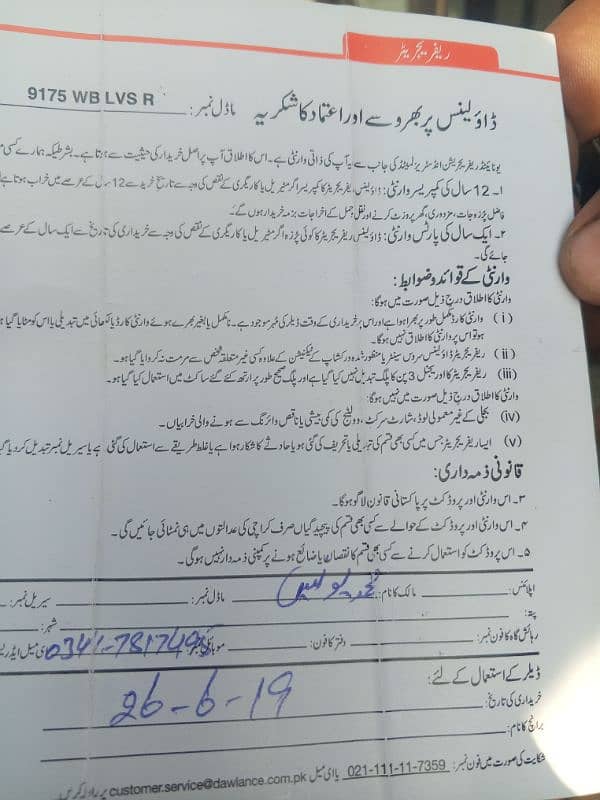 ریفریجریٹر
ڈاؤلینس پر بھروسے اور اعتماد کا شکریہ ماڈل نمبر: 9175 WB LVS R
یونائیٹڈ ریفریجریشن انڈسٹریز لمیٹڈ کی جانب سے یہ آپ کی ذاتی وارنٹی ہے۔ اس کا اطلاق آپ پر اصل خریدار کی حیثیت سے ہوتا ہے۔ بشرطیکہ ہمارے کسی
۱۔ 12 سال کی کمپریسر وارنٹی: ڈاؤلینس ریفریجریٹر کا کمپریسر اگر میٹریل یا کاریگری کے نقص کی وجہ سے تاریخ خرید سے 12 سال کے عرصے میں خراب ہوتا ہے
فاضل پرزہ جات، مزدوری، گھر پر وزٹ کرنے اور نقل و حمل کے اخراجات بزمہ خریدار ہوں گے۔
۲۔ ایک سال کی پارٹس وارنٹی: ڈاؤلینس ریفریجریٹر کا کوئی پرزہ اگر میٹریل یا کاریگری کے نقص کی وجہ سے خریداری کی تاریخ سے ایک سال کے عرصے
جائے گی۔
وارنٹی کے قوائد و ضوابط:
وارنٹی کا اطلاق درج ذیل صورت میں ہوگا:
(i) وارنٹی کارڈ مکمل طور پر بھرا ہوا ہے اور اس پر خریداری کے وقت ڈیلر کی مُہر موجود ہے۔ نامکمل یا بغیر بھرے ہوئے وارنٹی کارڈ یا لکھائی میں تبدیلی یا اس کو مٹایا گیا
ہو تو اس پر وارنٹی کا اطلاق نہیں ہوگا۔
(ii) ریفریجریٹر ڈاؤلینس سروس سینٹر یا منظور شدہ ورکشاپ کے ٹیکنیشن کے علاوہ کسی غیر متعلقہ شخص سے مرمت نہ کروایا گیا ہو۔
(iii) ریفریجریٹر کا اوریجنل 3 پن کا پلگ تبدیل نہیں کیا گیا ہے اور پلگ صحیح طور پر ارتھ کئے گئے ساکٹ میں استعمال کیا گیا ہو۔
وارنٹی کا اطلاق درج ذیل صورت میں نہیں ہوگا:
(iv) بجلی کے غیر معمولی لوڈ، شارٹ سرکٹ، وولٹیج کی کمی بیشی یا ناقص وائرنگ سے ہونے والی خرابیاں۔
(v) ایسا ریفریجریٹر جس میں کسی بھی قسم کی تبدیلی یا تحریف کی گئی ہو یا حادثے کا شکار ہوا ہے یا غلط طریقے سے استعمال کی گئی ہے یا سیریل نمبر تبدیل کر دیا
قانونی ذمہ داری:
۳۔ اس وارنٹی اور پروڈکٹ پر پاکستانی قانون لاگو ہوگا۔
۴۔ اس وارنٹی اور پروڈکٹ کے حوالے سے کسی بھی قسم کی پیچیدگیاں صرف کراچی کی عدالتوں میں ہی نمٹائی جائیں گی۔
۵۔ اس پروڈکٹ کو استعمال کرنے سے کسی بھی قسم کا نقصان یا ضائع ہونے پر کمپنی ذمہ دار نہیں ہوگی۔
اپلائنس: مالک کا نام: محمد یونس ماڈل نمبر: سیریل نمبر:
پتہ: شہر:
رہائش گاہ کا فون نمبر: دفتر کا فون: موبائل نمبر: 0341-7817498 ای میل ایڈریس
ڈیلر کے استعمال کے لئے:
خریداری کی تاریخ: 26-6-19
برانچ کا نام:
شکایت کی صورت میں فون نمبر: 021-111-11-7359 یا ای میل customer.service@dawlance.com.pk پر روانہ کریں۔